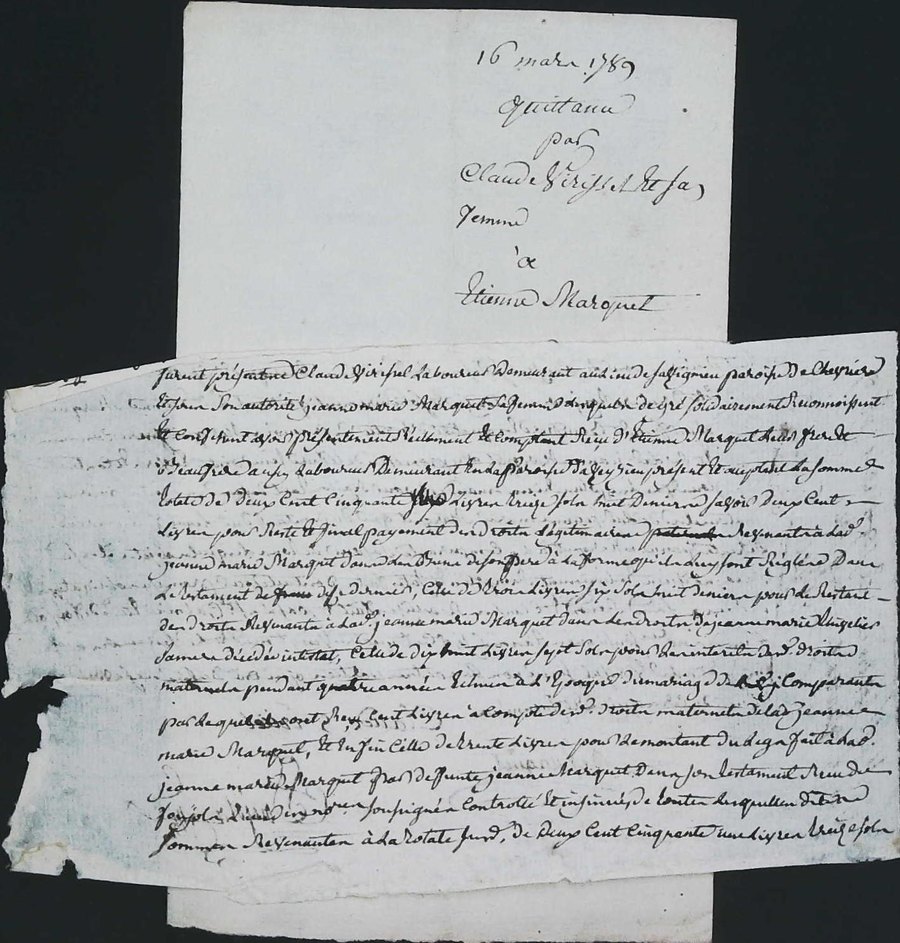 16 mars 1789
Quittance
par
Claude Virissel Et sa
femme
à
Etienne Marquet
furent présent Claude Virissel Laboureur Demeurant au lieu de paroisse De Chevrière
Et sous Son autorité jeanne marie Marquet Sa femme de gré solidairement Reconnoissent
Et Confessent avoir présentement Réelement Et Comptant Reçu d'Etienne Marquet Leur frere Et
Beaufrere aussy Laboureur Demeurant En La Paroisse d'Aveyzieu présent Et acceptant La somme
totale de Deux Cent Cinquante Livres treize sols huit Deniers savoir Deux Cent
Livres pour Reste Et final payement des Droits Légitimaires Revenants à Lad.
jeanne marie Marquet dans Les Biens de son père à La forme qu'ils Luy sont Réglés Dans
Le testament de ce dernier, Celle de trois Livres six sols huit deniers pour Le Restant
des droits Revenants à Lad. jeanne marie Marquet dans Les droits de jeanne marie
sa mere décédée intestat, Celle de dix huit Livres sept sols pour Les interets des d. droits
maternels pendant quatre années à L'Epoque du mariage de Comparants
par Lequel ont Reçu Cent Livres à Compte des d. droits maternels de Lad. jeanne
marie Marquet, Et Enfin Celle de trente Livres pour Le montant du Legs fait à Lad.
jeanne marie Marquet par deffunte jeanne Marquet Dans son testament Reçu
soussignés Controllé Et insinué de toutes Lesquelles dites
sommes Revenantes à La totale susd. de Deux Cent Cinquante une Livres treize sols